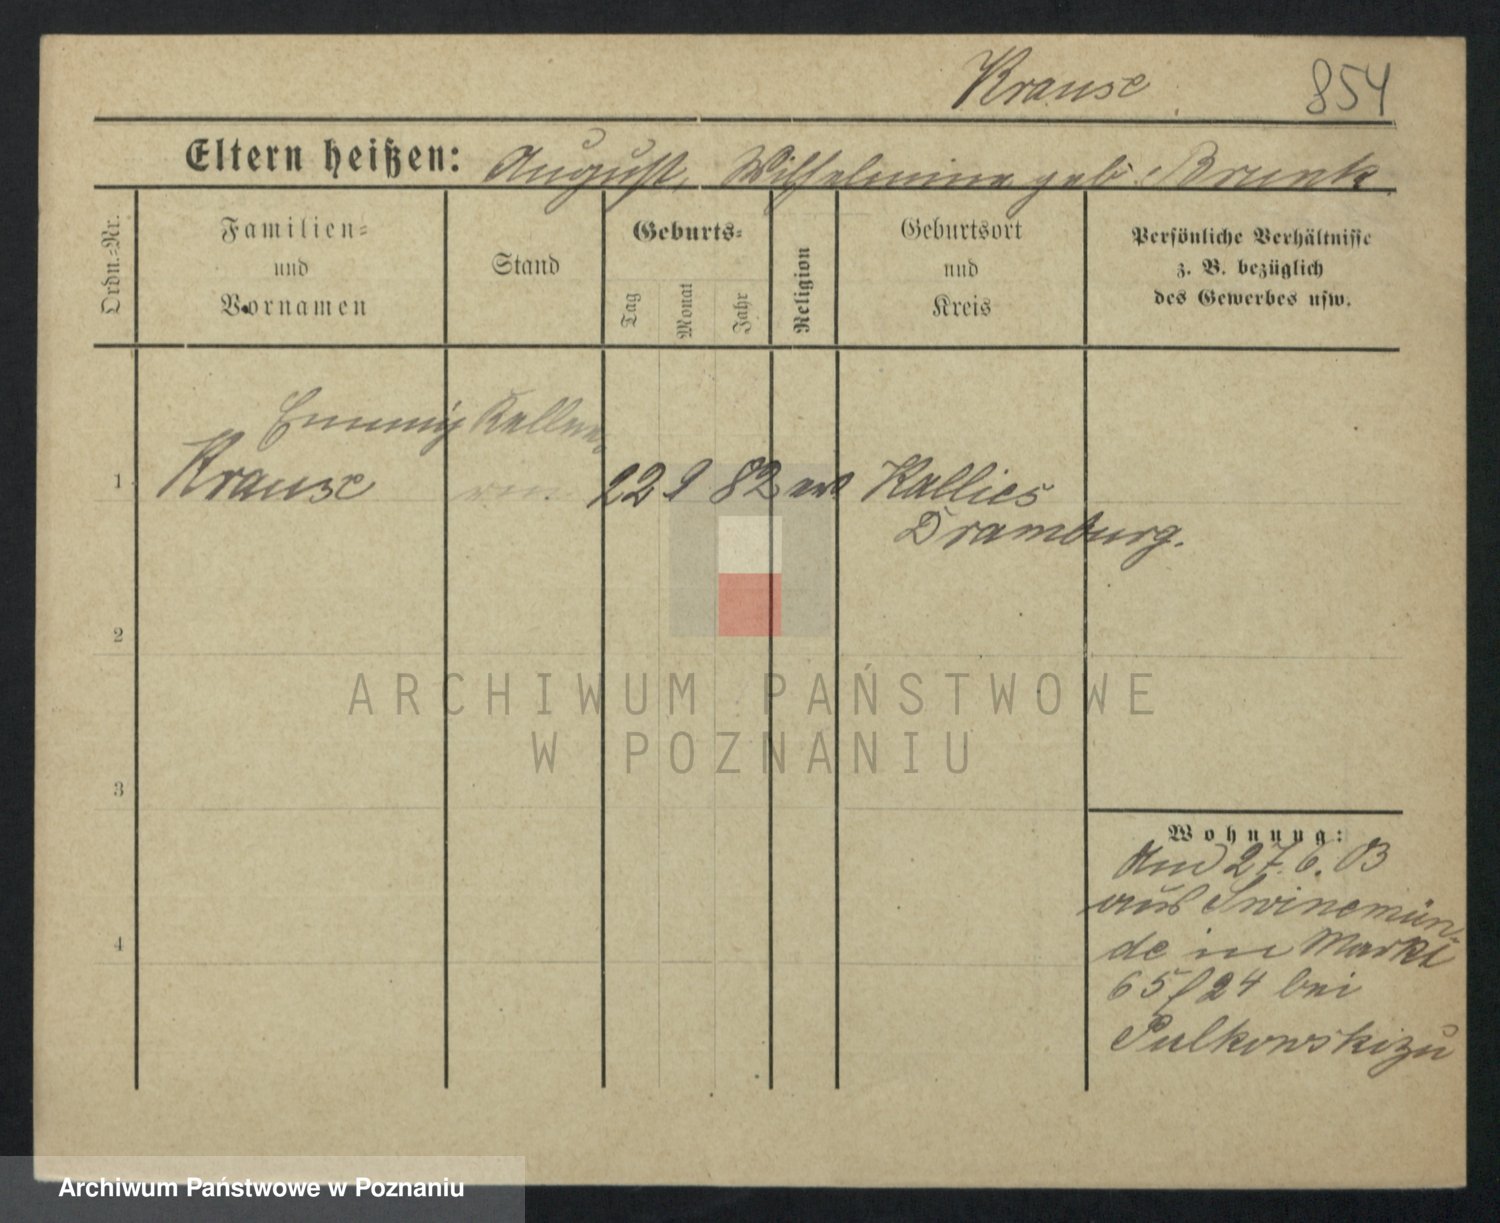 Krause
854
Eltern heißen: August, Wilhelmine geb. Brunk
Ordn.-Nr.
Familien-
und
Vornamen
Stand
Geburts-
Tag
Monat
Jahr
Religion
Geburtsort
und
Kreis
Persönliche Verhältnisse
z. B. bezüglich
des Gewerbes usw.
Emmy Kellne-
1 Krause rin 22 9 82 ev Kallies
Dramburg.
2
3
4
ARCHIWUM PAŃSTWOWE
W POZNANIU
Wohnung:
27.6.03
aus Swinemün-
de in Markt
65/24 bei
Pulkowski zu
Archiwum Państwowe w Poznaniu